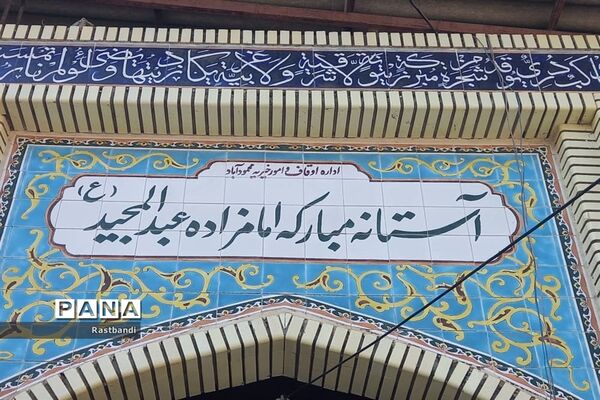 کوکب دری یوقد من شجرة مبرکة زیتونة لا شرقیة ولا غربیة یکاد زیتها یضیء ولو لم تمسسه
اداره اوقاف و امور خیریه محمودآباد
آستانه مبارکه امامزاده عبدالمجید (ع)
PANA
Rastbandi